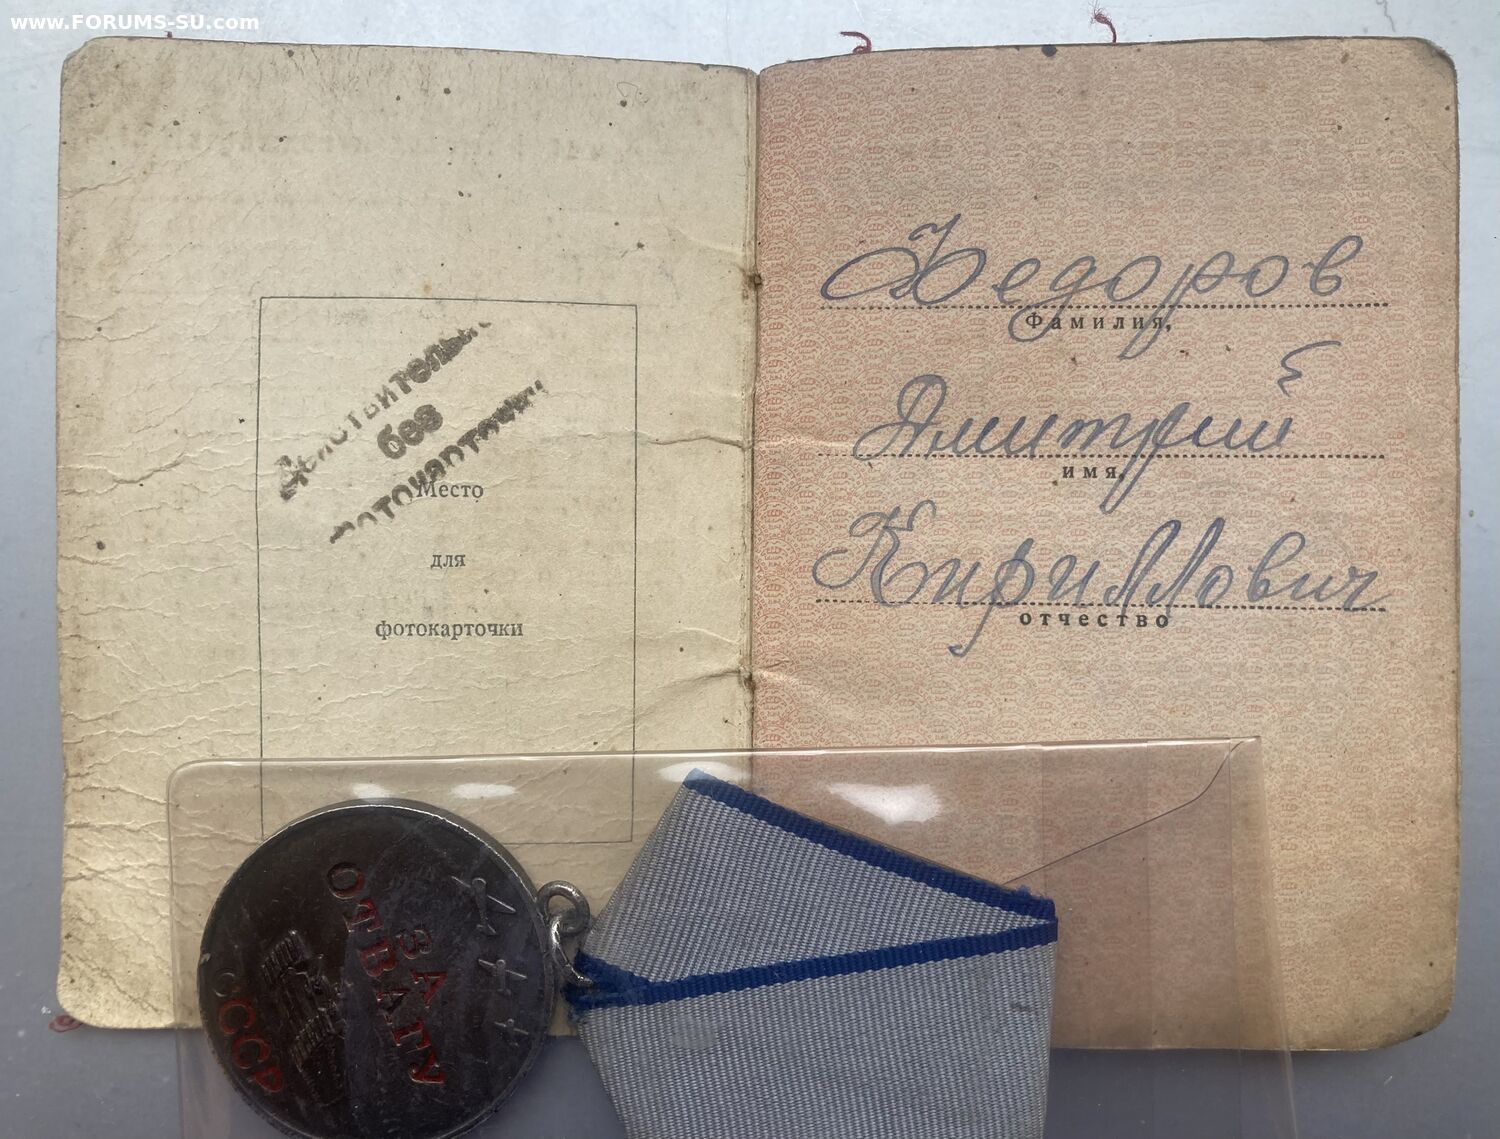 www.FORUMS-SU.com
Действительно
без
фотокарточки
Место
для
фотокарточки
Федоров
Фамилия,
Дмитрий
имя,
Кириллович
отчество
ЗА
ОТВАГУ
СССР